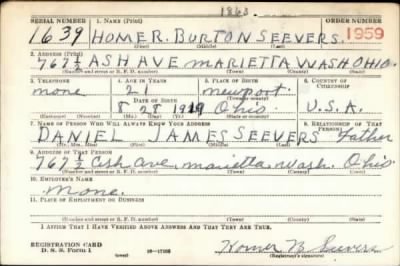 1863
SERIAL NUMBER 1. NAME (Print) ORDER NUMBER
1639 HOMER. BURTON SEEVERS. 1959
(First) (Middle) (Last)
2. ADDRESS (Print)
767½ ASH AVE MARIETTA WASH OHIO.
(Number and street or R. F. D. number) (Town) (County) (State)
3. TELEPHONE 4. AGE IN YEARS 5. PLACE OF BIRTH 6. COUNTRY OF CITIZENSHIP
none 21 newport
DATE OF BIRTH (Town or county)
8 28 1919 Ohio U.S.A.
(Mo.) (Day) (Yr.) (State or country)
7. NAME OF PERSON WHO WILL ALWAYS KNOW YOUR ADDRESS 8. RELATIONSHIP OF THAT PERSON
DANIEL JAMES SEEVERS Father
(Mr., Mrs., Miss) (First) (Middle) (Last)
9. ADDRESS OF THAT PERSON
767½ Ash ave marietta wash. Ohio
(Number and street or R. F. D. number) (Town) (County) (State)
10. EMPLOYER'S NAME
none.
11. PLACE OF EMPLOYMENT OR BUSINESS
(Number and street or R. F. D. number) (Town) (County) (State)
I AFFIRM THAT I HAVE VERIFIED ABOVE ANSWERS AND THAT THEY ARE TRUE.
REGISTRATION CARD
D. S. S. Form 1 (over) Homer B Seevers
(Registrant's signature)